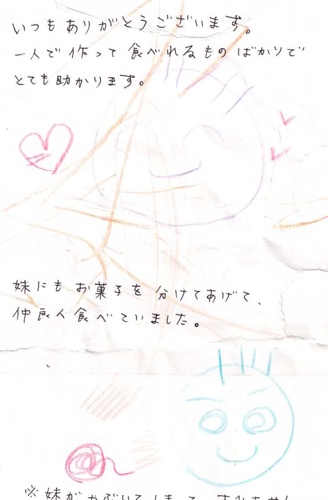 いつもありがとうございます。
一人で作って食べれるものばかりで
とても助かります。
妹にもお菓子を分けてあげて、
仲良く食べていました。
※妹がやぶいてしまって、すみません